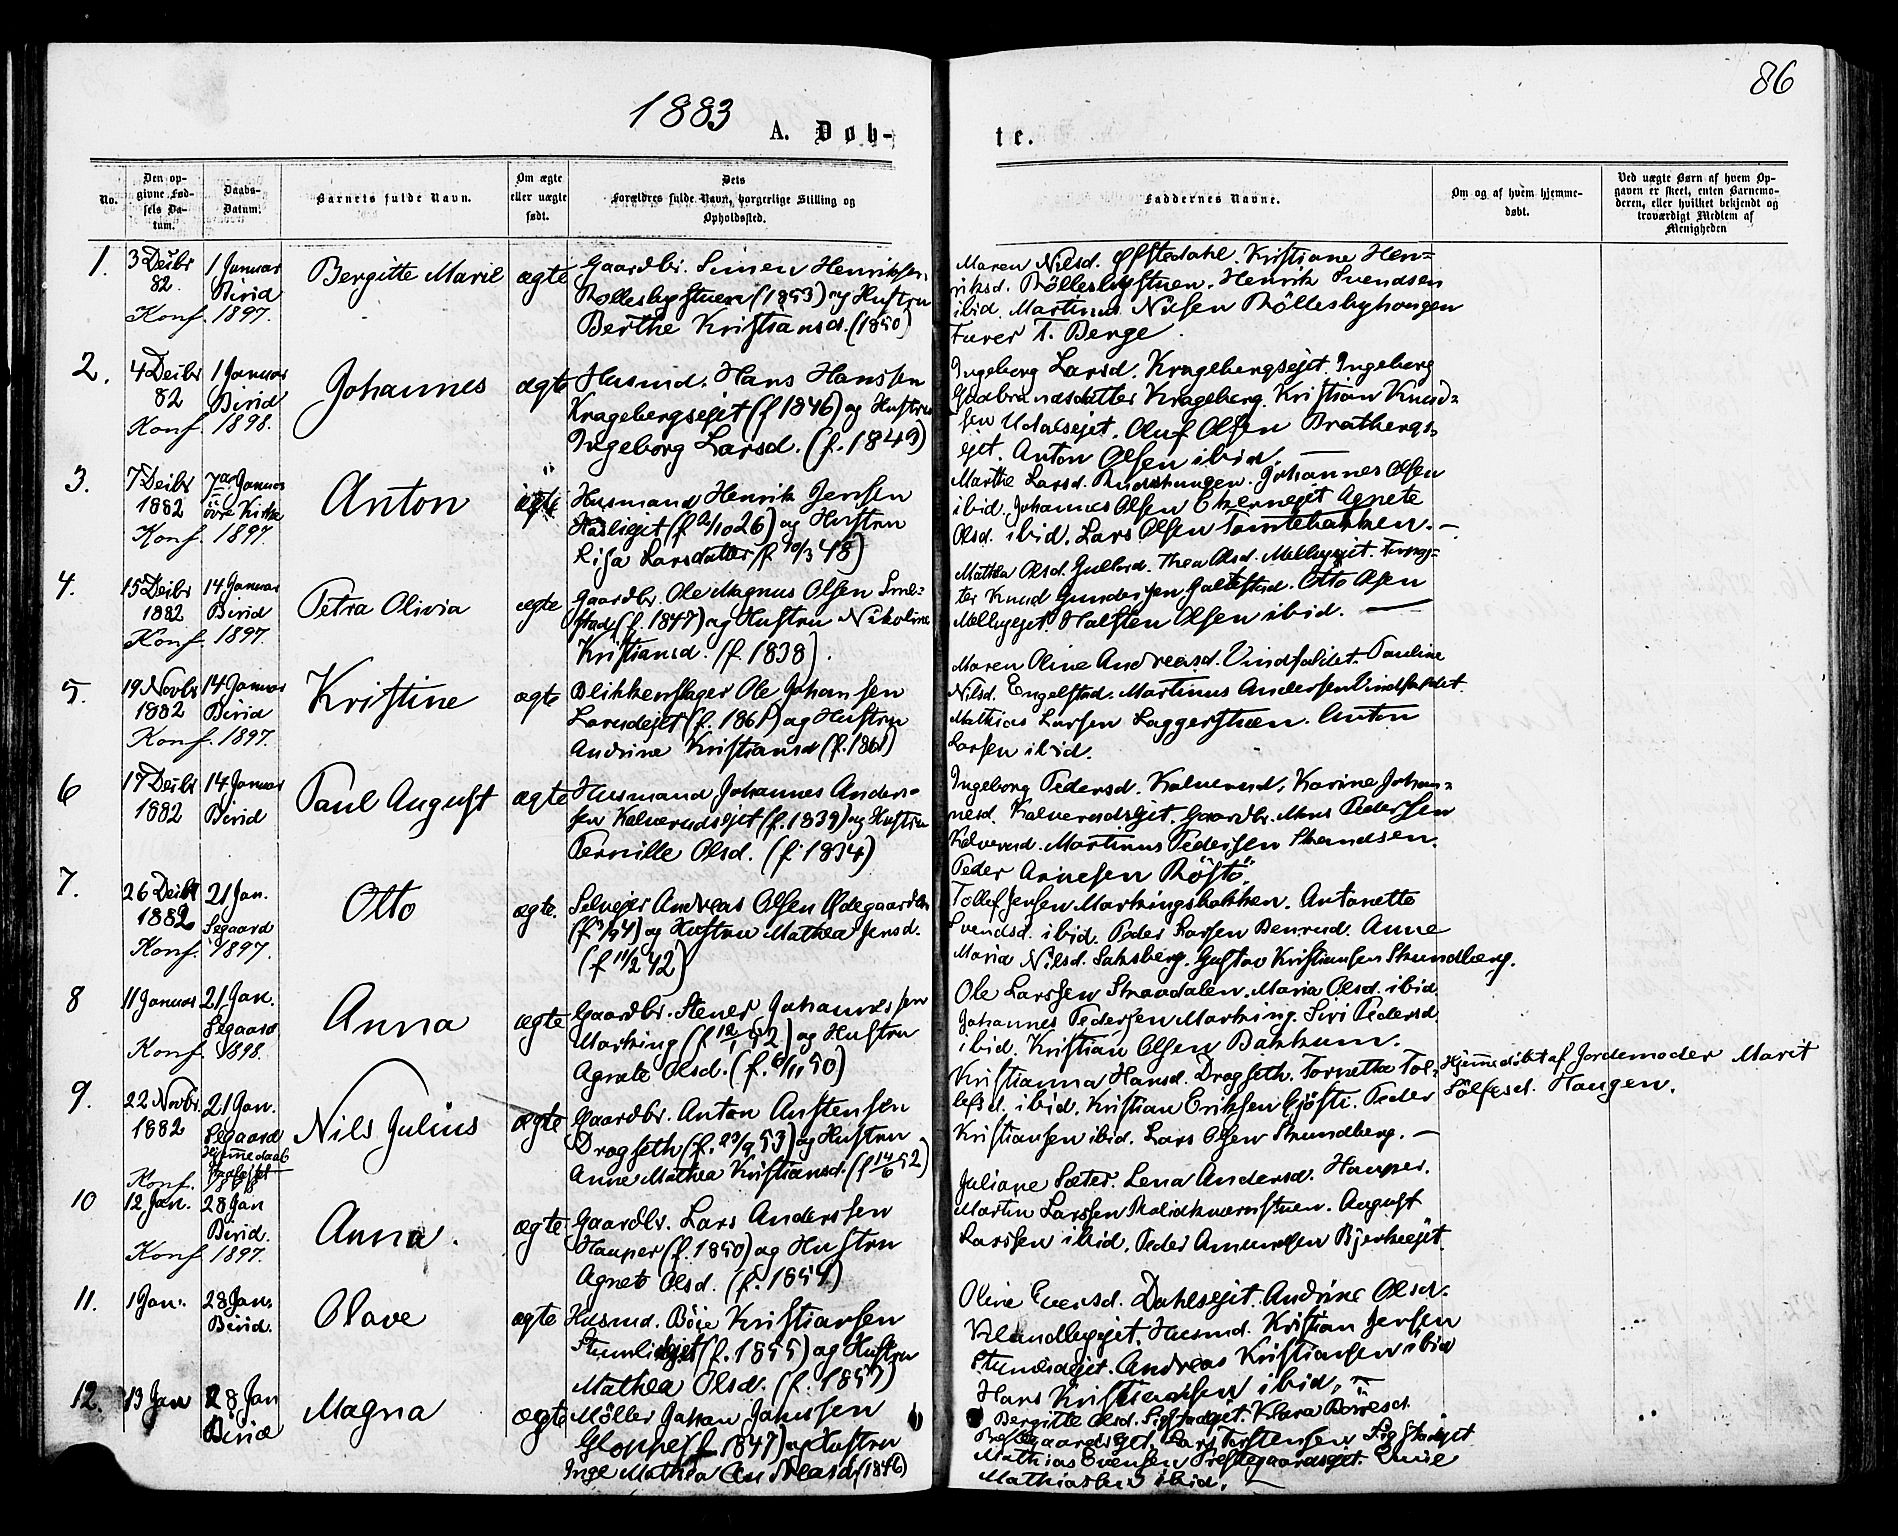 86
1883
A. Døb-
te.
No.
Den op-
givne Fød-
sels Da-
tum.
Daabs-
Datum.
Barnets fulde Navn.
Om ægte
eller uægte
født.
Dets
Forældres fulde Navn, borgerlige Stilling og
Opholdssted.
Faddernes Navne.
Om og af hvem hjemme-
døbt.
Ved uægte Børn af hvem Op-
gaven er skeet, enten Barnemo-
deren, eller hvilket bekjendt og
troværdigt Medlem af
Menigheden
1.
3 Decbr
82.
1 Januar
Birid
Konf. 1897.
Bergitte Marie
ægte
Gaardbr. Simen Henriksen
Rollesbystuen (1853) og Hustru
Berthe Kristiansd. (1850)
Maren Nilsd. Øfstedahl. Kristiane Hen-
riksd. Röllesbystuen. Henrik Svendsen
ibid. Martinus Nilsen Röllesbyhougen
Furer T. Berge
2.
4 Decbr
82
1 Januar
Birid
Konf. 1898.
Johannes
ægte
Husmd. Hans Hanssen
Kragebergsejet (f 1846) og Hustru
Ingeborg Larsd. (f. 1849)
Ingeborg Larsd. Kragebergsejet. Ingeborg
Gudbrandsdatter Krageberg. Kristian Knud-
sen Udalsejet. Oluf Olsen Bratbergs-
ejet. Anton Olsen ibid. —
3.
7 Decbr
1882
7 Januar
övre Kirke
Konf. 1897.
Anton
ægte
Husmand Henrik Jensen
(f 2/10 26) og Hustru
Lisa Larsdatter (f 10/3 48)
Marthe Larsd. Johannes Olsen
ibid. Johannes Olsen Agnete
Olsd. ibid. Lars Olsen Tomtebakken. —
4.
15 Decbr
1882
14 Januar
Birid
Konf. 1897.
Petra Olivia
ægte
Gaardbr. Ole Magnus Olsen Smel-
stad (f. 1847) og Hustru Nikoline
Kristiansd. (f. 1838).
Mathea Olsd. Thea Olsd. Mellbyejet.
ter Knud Gundersen Otto Olsen
Mellbyejet. Halsten Olsen ibid. —
5.
19 Novbr
1882
14 Januar
Birid
Konf. 1897.
Kristine
ægte
Blikkenslager Ole Johansen
(f. 1861) og Hustru
Andrine Kristiansd (f. 1861)
Maren Oline Andreasd. Vindfaldet. Pauline
Nilsd. Engelstad. Martinus Andersen Vindfaldet.
Mathias Larsen Laggerstuen. Anton
Larsen ibid.
6
17 Decbr
1882
14 Januar
Birid
Paul August
ægte
Husmand Johannes Anders-
sen Kalverudsejet (f. 1839) og Hustru
Pernille Olsd. (f. 1834)
Ingeborg Pedersd. Kalverud. Karine Johan-
nesd. Kalverudsejet. Gaardbr. Mons Pedersen
Kalverud. Martinus Pedersen Strandsen.
Peder Arnesen Röstö.
7.
26 Decbr
1882
21 Jan.
Segaard
Konf. 1897.
Otto
ægte.
Selvejer Andreas Olsen Ødegaarden
og Hustru Mathea Jensd.
(f 11/2 42)
Tollef Jensen Markingsbakken. Antonette
Svendsd. ibid. Peder Larsen Benrud. Anne
Maria Nilsd. Saksberg. Gustav Kristiansen Strundberg.
8
11 Januar
21 Jan.
Segaard
Konf. 1898.
Anna
ægte
Gaardbr. Stener Johannessen
Marking (f 12/1 52) og Hustru
Agnete Olsd. (f. 6/11 50)
Ole Larssen Strandalen. Maria Olsd. ibid.
Johannes Pedersen Marking. Siri Pedersd.
ibid. Kristian Olsen Bakkum.
9.
22 Novbr.
1882
21 Jan.
Segaard
Hjemmedaab
Konf. 1898
Nils Julius
ægte
Gaardbr. Anton Anstensen
Dragseth (f. 29/9 53) og Hustru
Anne Mathea Kristiansd. (f 14/6 52)
Kristianna Hansd. Dragseth. Tornetta Tol-
lefsd. ibid. Kristian Eriksen Gjöstr. Peder
Kristiansen ibid. Lars Olsen Strundberg. —
Hjemmedöbt af Jordemoder Marit
Sölfesd. Haugen.
10
12 Jan.
28 Jan
Birid.
Konf 1897.
Anna.
ægte
Gaardbr. Lars Anderssen
Hauper (f. 1850) og Hustru
Agnete Olsd. (f. 1854)
Juliane Sæter. Lena Andersd. Hauper.
Martin Larssen August
Larssen ibid. Peder Amundsen Bjerkeejet.
11.
1 Jan.
28 Jan.
Birid.
Olave
ægte
Husmd. Böie Kristiansen
(f. 1855) og Hustru
Mathea Olsd. (f. 1857)
Oline Evensd. Dahlsejet. Andrine Olsd.
Husmd. Kristian Jensen
Andreas Kristiansen ibid
Hans Kristiansen ibid, —
12.
13 Jan
28 Jan
Birid
Magna
ægte
Möller Johan Jahnsen
Gloppe (f. 1847) og Hustru
Inge Mathea Andreasd. (1846)
Bergitte Olsd. Sigstadejet. Klara Böresd.
Prestegaardsejet. Lars Torstensen Sigstadejet
Mathias Evensen Prestegaardsejet. Emil
Mathiassen ibid.